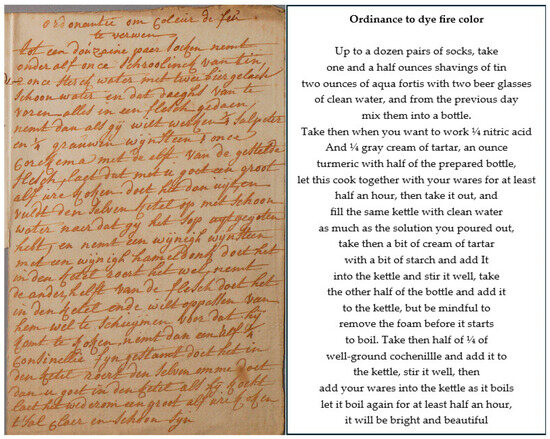 ordonantie om coleur de feu
te verwen
tot een douzaine paer socken nemt
onder alf once van tin
2 once sterck water met twee bier
schoon water en dat daeghs van te
voren alles in een flesch gedaen
nemt dan als gij wilt werken ¼ salpeter
en ¼ grauwen wynsteen 1 once
met de elf. van de gestelde
flesch, laet dat met u goet een groot
alf ure kopen doet het dan uyt en
vuldt den selven ketel op met schoon
water naer dat gij het sop uyt gegoten
hebt, en nemt een wijnigh wynsteen
met een wijnigh doet het
in den ketel roert het wel, nemt
de ander helft van de flesch doet het
in den ketel ende wilt oppassen van
hem wel te schuymen voor dat hij
komt te kopen, nemt dan een half ¼
Consinellie fyn gestampt doet het in
den ketel roert den selven omme doet
dan u goet in den ketel als hij
laet het wederom een groot alf ure kopen
t'sal claer en schoon syn
Ordinance to dye fire color
Up to a dozen pairs of socks, take
one and a half ounces shavings of tin
two ounces of aqua fortis with two beer glasses
of clean water, and from the previous day
mix them into a bottle.
Take then when you want to work ¼ nitric acid
And ¼ gray cream of tartar, an ounce
turmeric with half of the prepared bottle,
let this cook together with your wares for at least
half an hour, then take it out, and
fill the same kettle with clean water
as much as the solution you poured out,
take then a bit of cream of tartar
with a bit of starch and add It
into the kettle and stir it well, take
the other half of the bottle and add it
to the kettle, but be mindful to
remove the foam before it starts
to boil. Take then half of ¼ of
well-ground cochenillle and add it to
the kettle, stir it well, then
add your wares into the kettle as it boils
let it boil again for at least half an hour,
it will be bright and beautiful